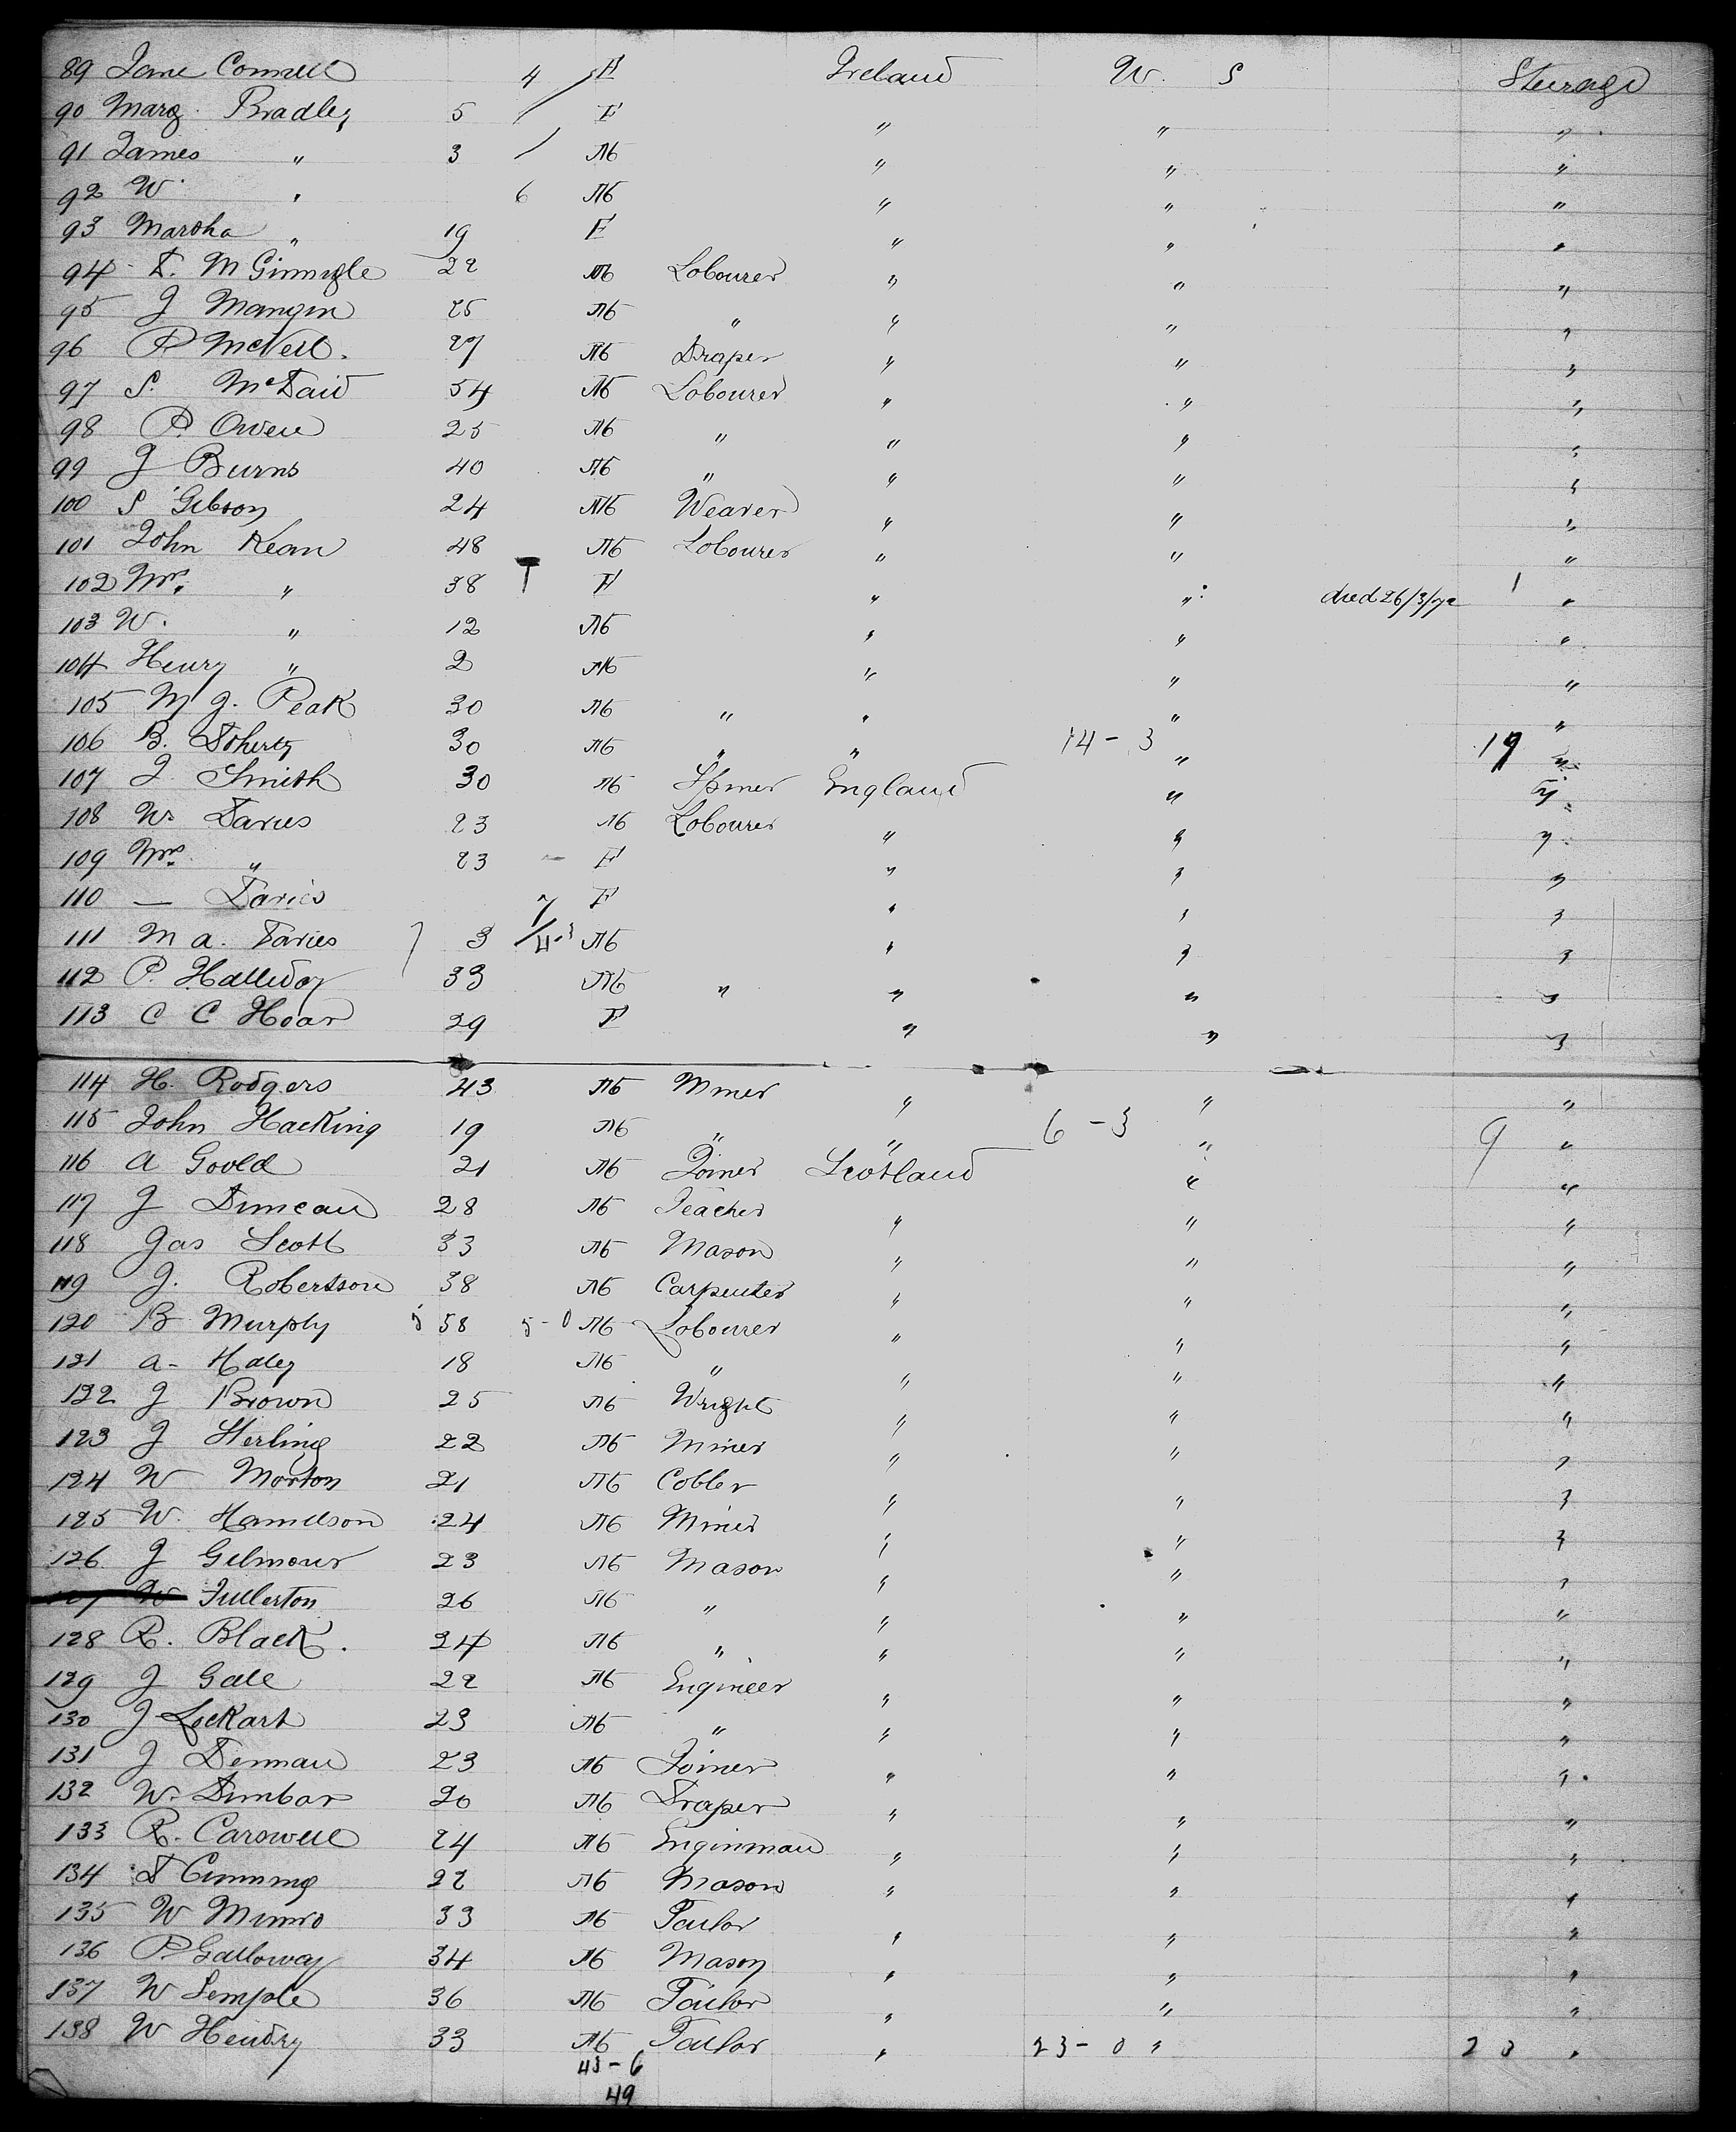 89 Jane Connell 4 / F Ireland U. S Steerage
90 Marg. Bradley 5 / F " " "
91 James " 3 / M " " "
92 W. " 6 M " " "
93 Martha " 19 F " " "
94 D. McGinnigle 22 M Labourer " " "
95 J Mangin 25 M " " " "
96 P. McNeil. 27 M Draper " " "
97 S. McDaid 54 M Labourer " " "
98 P. Owen 25 M " " " "
99 J Burns 40 M " " " "
100 S Gibson 24 M Weaver " " "
101 John Kean 48 M Labourer " " "
102 Mrs. " 38 F " " died 26/3/72 1 "
103 W. " 12 M " " "
104 Henry " 2 M " " "
105 M J. Peak 30 M " " " "
106 B. Doherty 30 M " " 14 - 3 " 17 "
107 J. Smith 30 M England " "
108 W. Davies 23 M Labourer " " "
109 Mrs. " 23 F " " "
110 — Davies 7 F " " "
111 M a. Davies 3 4-3 M " " "
112 P. Halliday 33 M " " " "
113 C C Hoar 29 F " " "
114 H. Rodgers 43 M Miner " " "
115 John Hacking 19 M " " 6 - 3 " 9 "
116 A Goold 21 M Joiner Scotland " "
117 J Duncan 28 M Teacher " " "
118 Jas Scott 33 M Mason " " "
119 J. Robertson 38 M Carpenter " " "
120 B Murphy 5 58 5-0 M Labourer " " "
121 a- Haley 18 M " " " "
122 J Brown 25 M Wright " " "
123 J Sterling 22 M Miner " " "
124 W Morton 21 M Cobbler " " "
125 W. 24 M Miner " " "
126 J Gilmour 23 M Mason " " "
127 W Fullerton 26 M " " " "
128 R. Black. 24 M " " " "
129 J Gale 22 M Engineer " " "
130 J Lockart 23 M " " " "
131 J Denman 23 M Joiner " " "
132 W. Dunbar 20 M Draper " " "
133 R. Carswell 24 M Enginman " " "
134 D Cumming 22 M Mason " " "
135 W Munro 33 M Tailor " " "
136 P. Galloway 34 M Mason " " "
137 W Semple 36 M Tailor " " "
138 W Hendry 33 M Tailor " 23 - 0 " 23 "
43 - 6
49